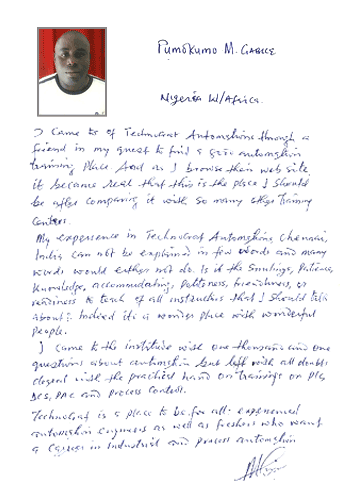 Pumokumo M. Gabice
Nigeria W/Africa.
I came to of Technocrat Automations through a
friend in my quest to find a good automation
training place And as I browse their web site,
it became real that this is the place I should
be after comparing it with so many other training
centers.
My experience in Technocrat Automations, Chennai,
India can not be explained in few words and many
words would either not do. Is it the Smilings, Patience,
Knowledge, accommodating, Politeness, friendliness, or
readiness to teach of all instructors that I should talk
about? Indeed its a wonder place with wonderful
people.
I came to the institute with one thousand and one
questions about automation but left with all doubts
cleared with the practical hand on trainings on PLC,
DCS, PAC and process control.
Technocrat is a place to be for all: experienced
automation engineers as well as freshers who want
a career in Industrial and process automation